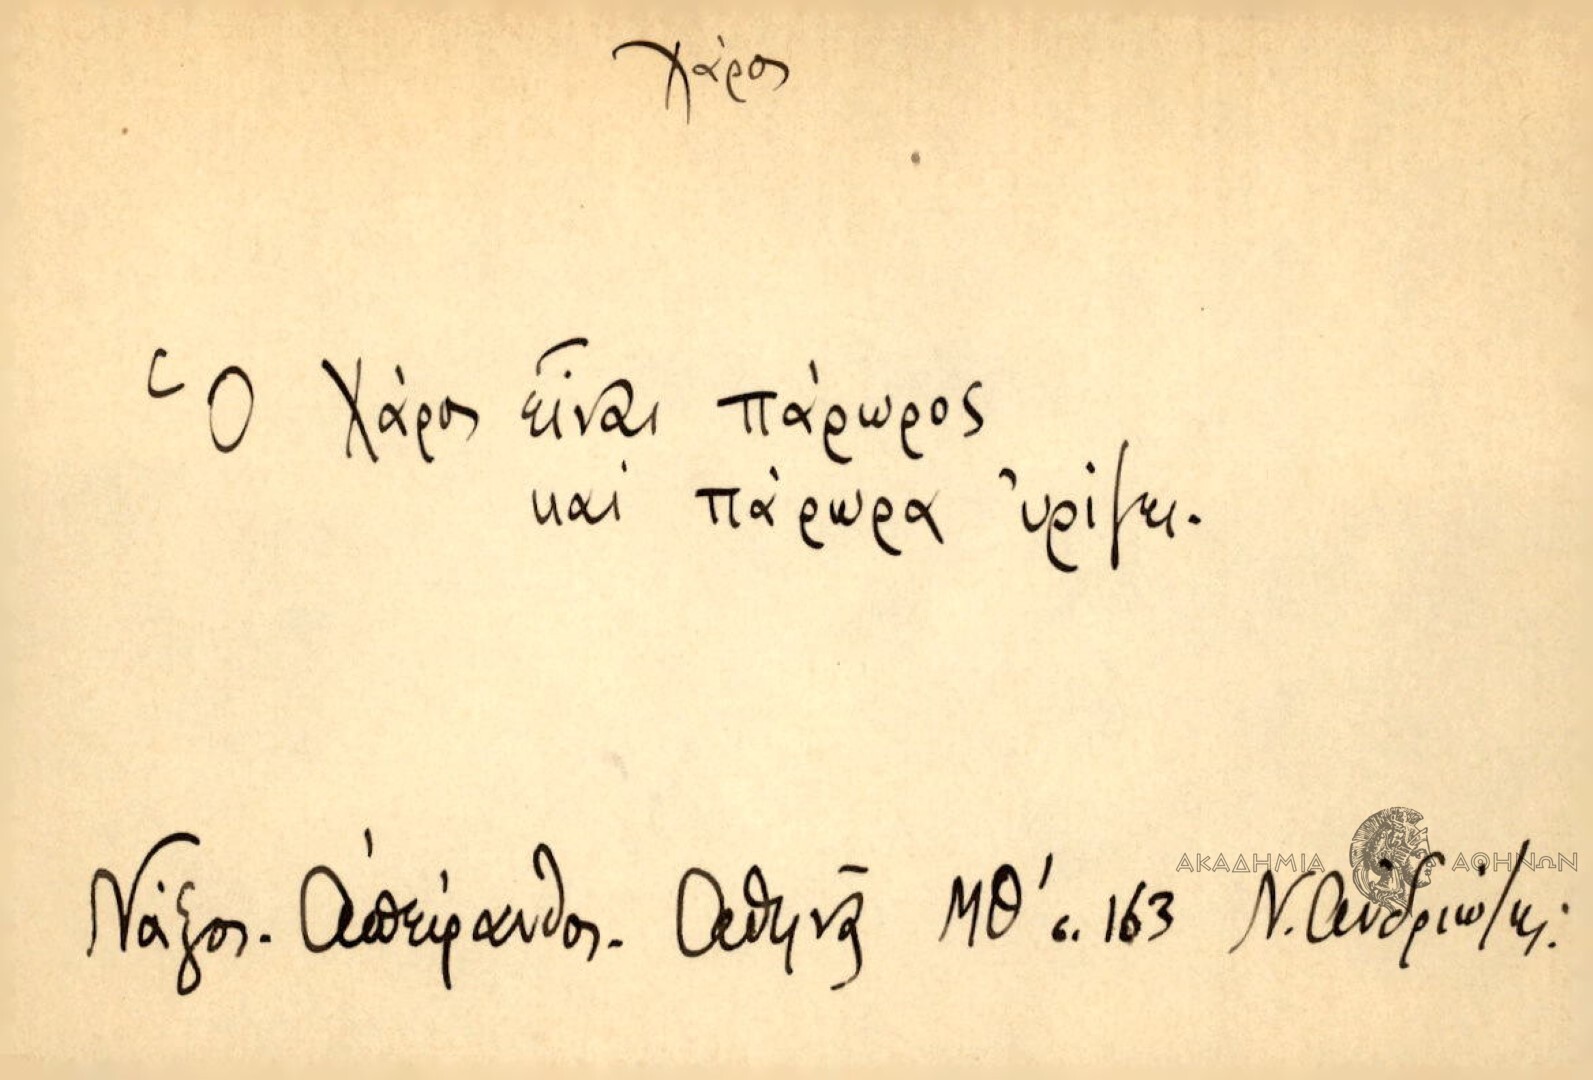 Χάρος
Ὁ Χάρος εἶναι πάρωρος
καί πάρωρα 'υρίζει.
ΑΚΑΔΗΜΙΑ ΑΘΗΝΩΝ
Νάξος. Ἀπείρανθος. Ἀθηνᾶ ΜΘ' σ. 163 Ν. Ἀνδριώτης: